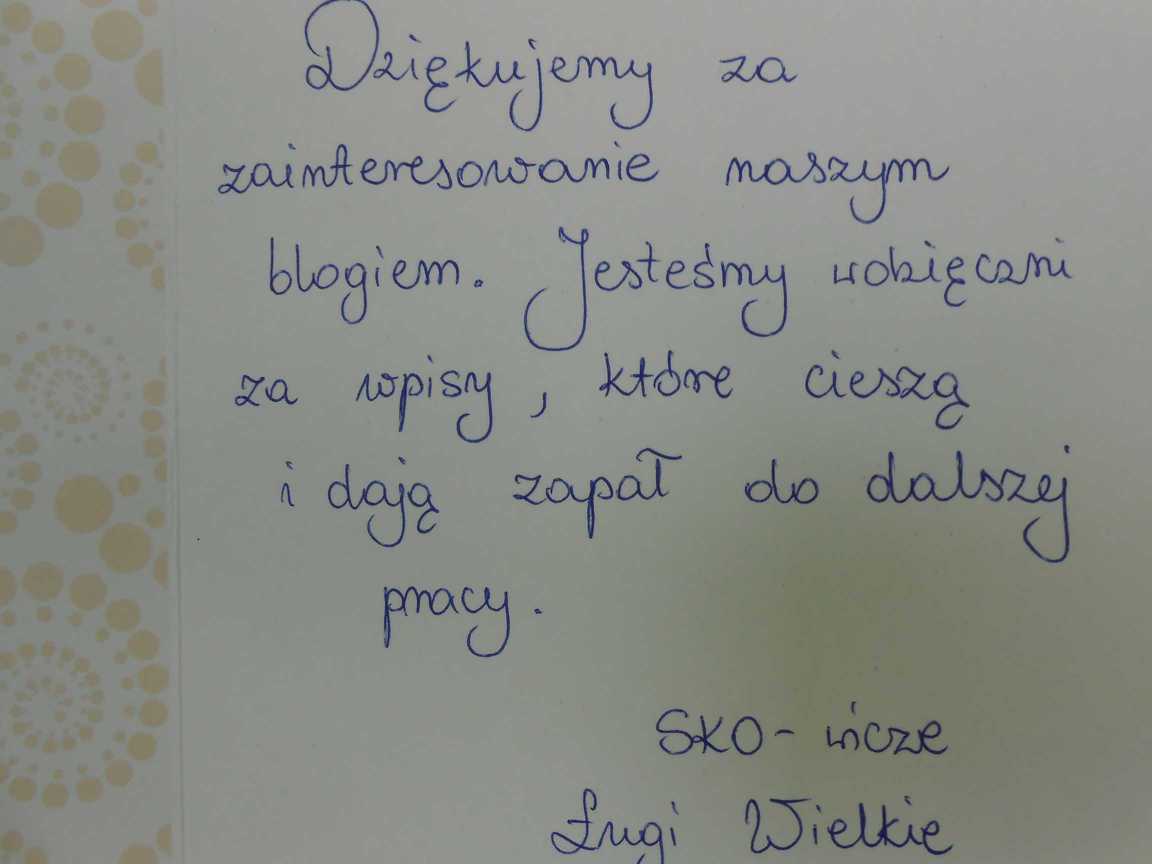 Dziękujemy za
zainteresowanie naszym
blogiem. Jesteśmy wdzięczni
za wpisy, które cieszą
i dają zapał do dalszej
pracy.
SKO-wicze
Ługi Wielkie